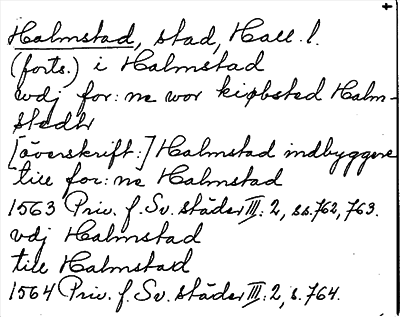 Halmstad, stad, Hall. l.
(forts.) i Halmstad
wdj for: ne wor kiøbsted Halm-
stedtr
[överskrift:] Halmstad indbyggere
till for: ne Halmstad
1563 Priv. f. Sv. städer III: 2, ss. 762, 763.
vdj Halmstad
till Halmstad
1564 Priv. f. Sv. städer III: 2, s. 764.